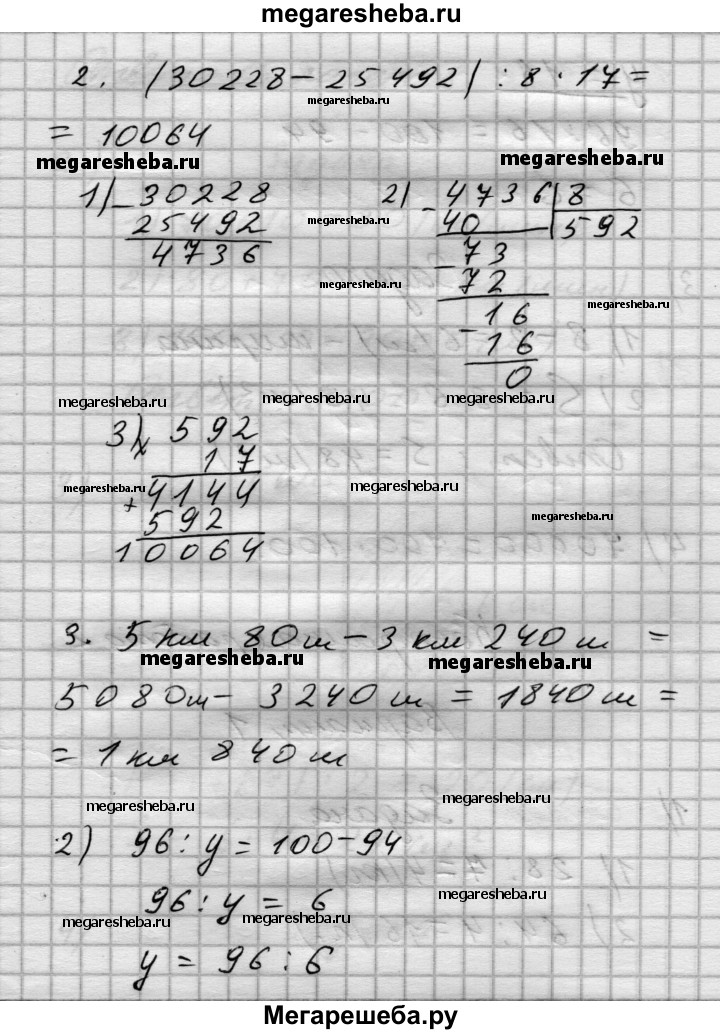 megaresheba.ru
2. (30228 - 25492) : 8 · 17 =
megaresheba.ru
= 10064
megaresheba.ru megaresheba.ru
1) - 30228 2) - 4736 | 8
25492 megaresheba.ru 40 592
4736 - 73
megaresheba.ru 72
- 16 megaresheba.ru
16
0
megaresheba.ru megaresheba.ru megaresheba.ru
3) x 592
17
megaresheba.ru 4144 megaresheba.ru
+ 592 megaresheba.ru
10064
3. 5 км 80 м - 3 км 240 м =
megaresheba.ru megaresheba.ru
5080 м - 3240 м = 1840 м =
= 1 км 840 м
megaresheba.ru megaresheba.ru
2) 96 : y = 100 - 94
96 : y = 6 megaresheba.ru
megaresheba.ru megaresheba.ru
y = 96 : 6
Мегарешеба.ру